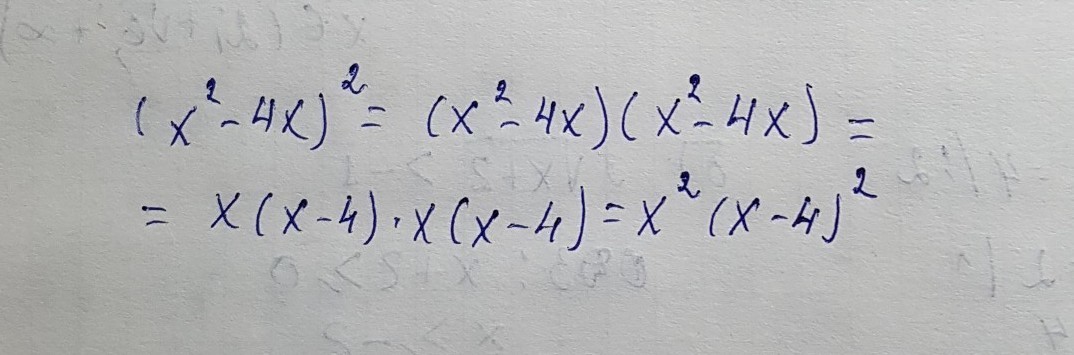 (x²-4x)² = (x²-4x)(x²-4x) =
= x(x-4)·x(x-4) = x²(x-4)²